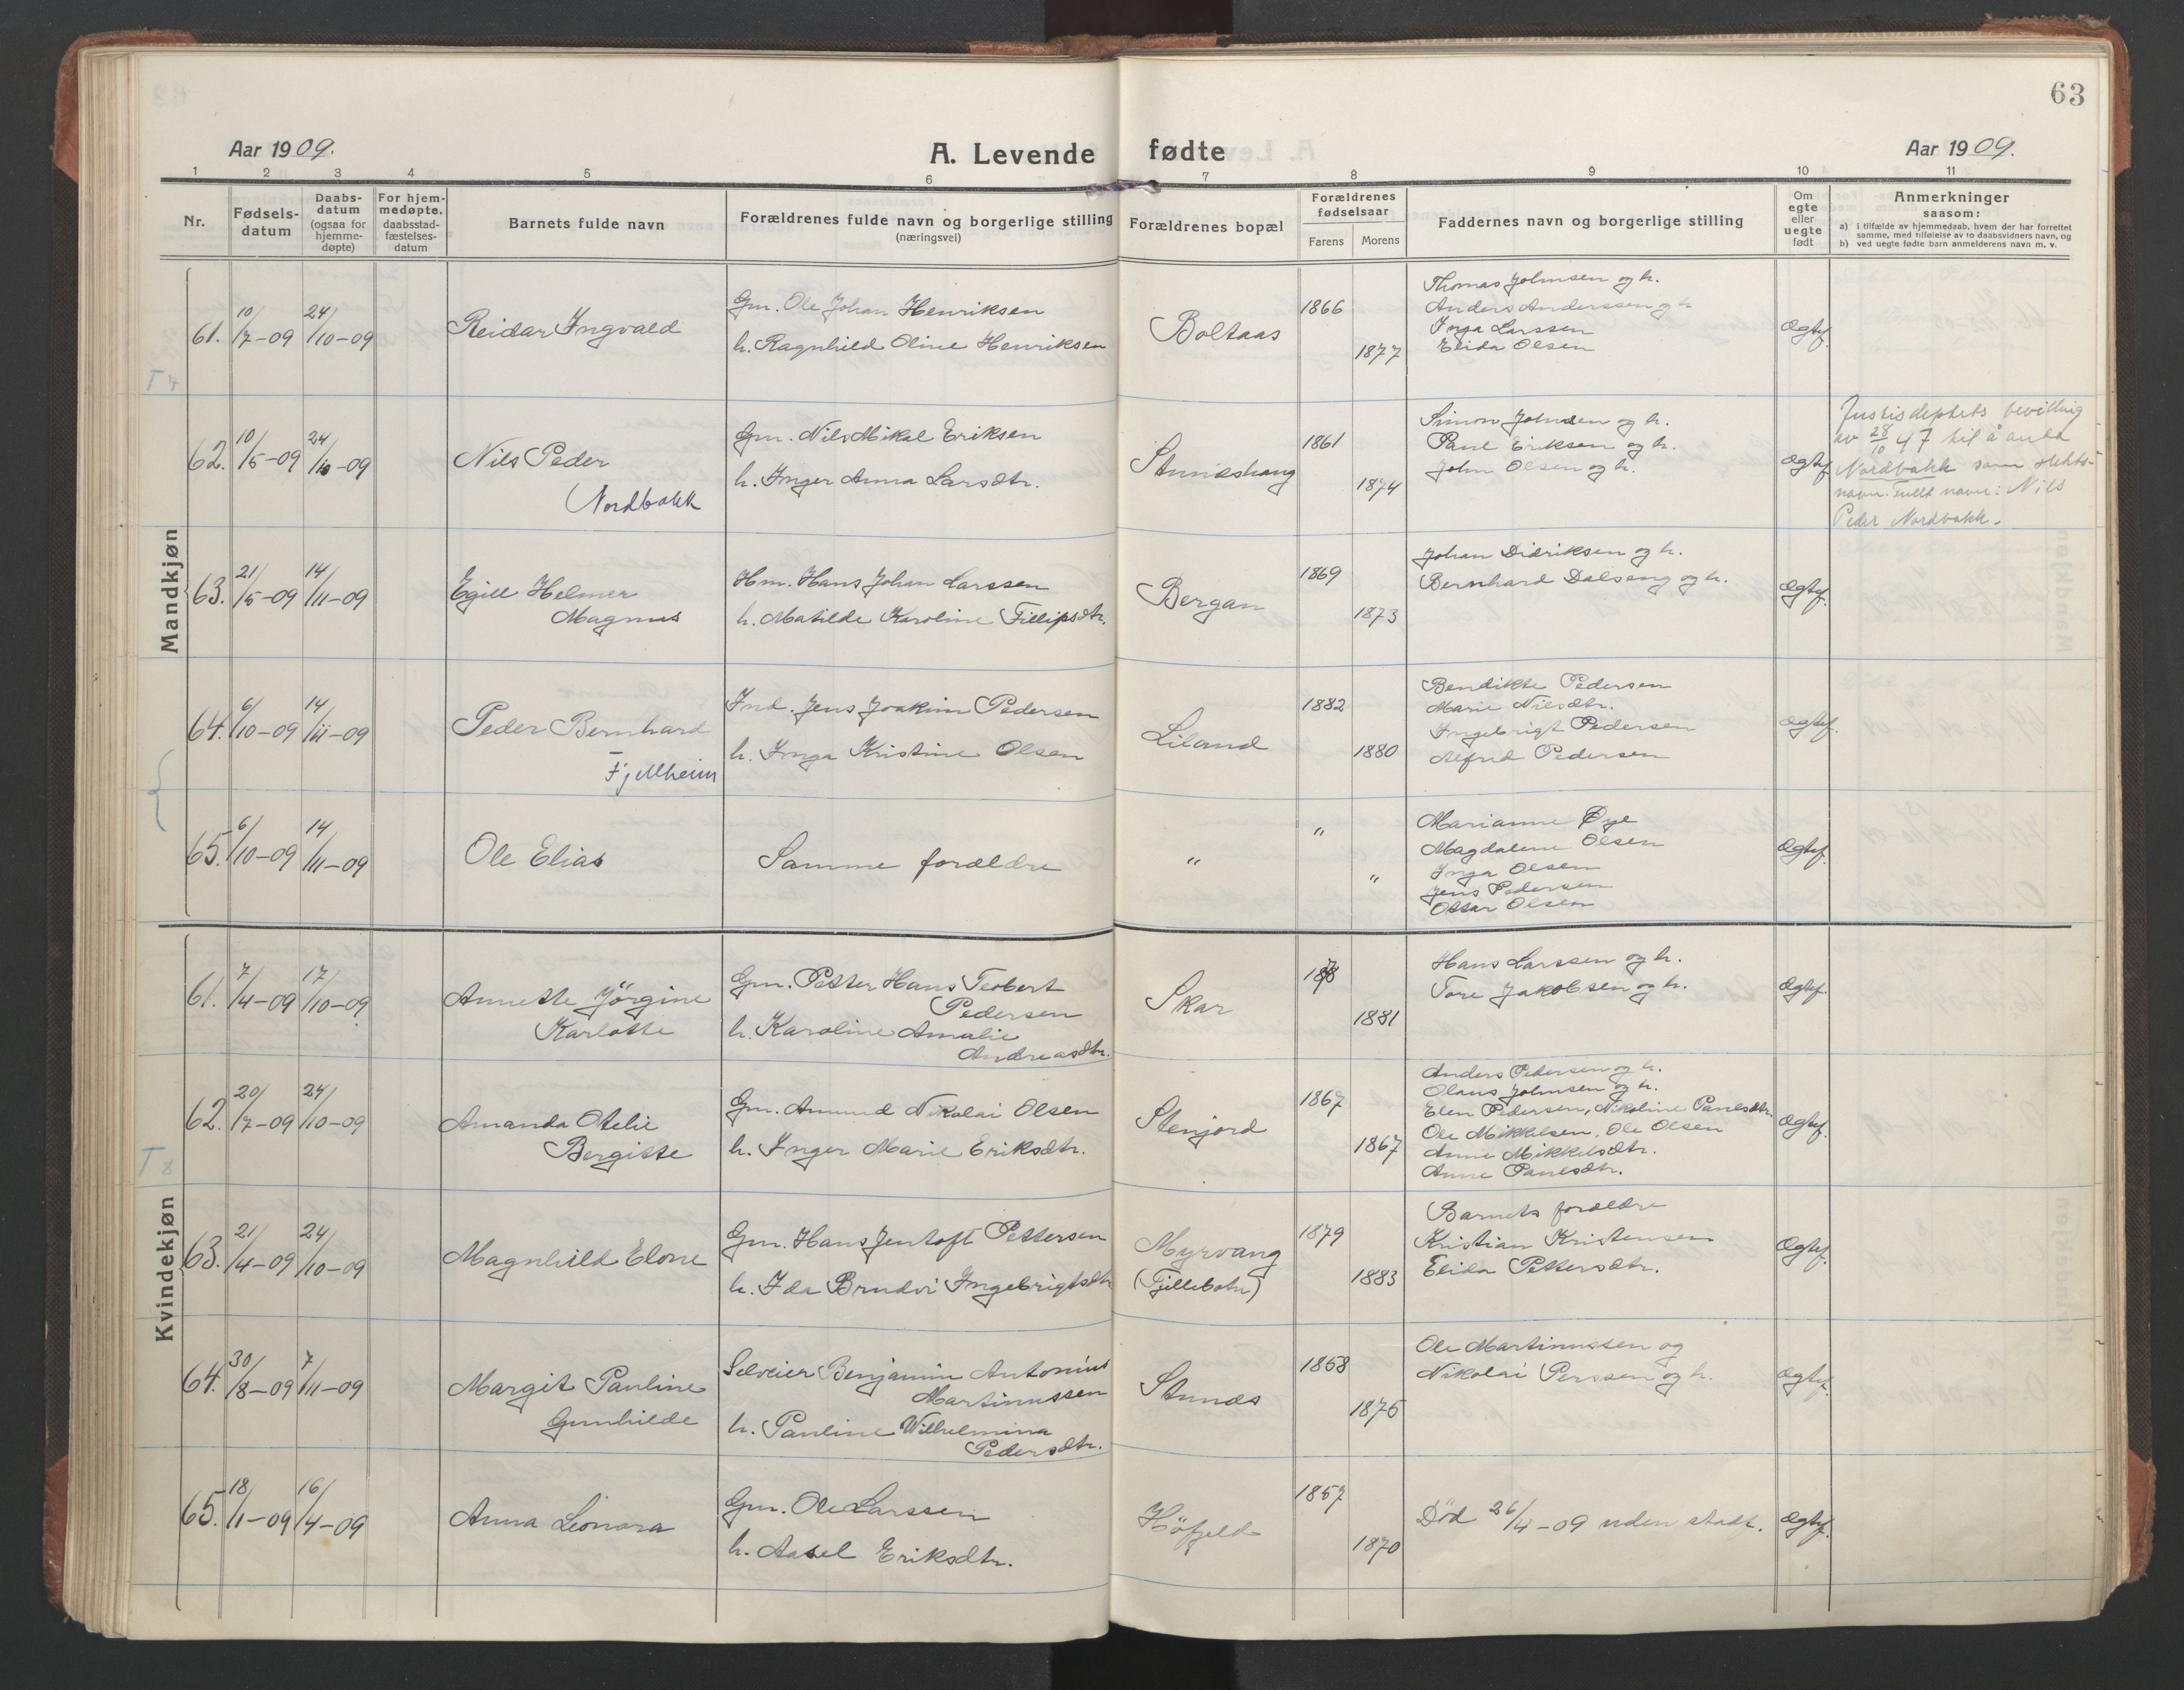 63
Aar 1909.
A. Levende fødte
Aar 1909.
1 2 3 4 5 6 7 8 9 10 11
Nr.
Fødsels-
datum
Daabs-
datum
(ogsaa for
hjemme-
døpte)
For hjem-
medøpte,
daabsstad-
fæstelses-
datum
Barnets fulde navn
Forældrenes fulde navn og borgerlige stilling
(næringsvei)
Forældrenes bopæl
Forældrenes
fødselsaar
Farens
Morens
Faddernes navn og borgerlige stilling
Om
egte
eller
uegte
født
Anmerkninger
saasom:
a) i tilfælde av hjemmedaab, hvem der har forrettet
samme, med tilføielse av to daabsvidners navn, og
b) ved uegte fødte barn anmelderens navn m. v.
Mandkjøn
61. 10/7-09 24/10-09
Reidar Ingvald
Gm. Ole Johan Henriksen
h. Ragnhild Oline Henriksen
Boltaas
1866
1877
Thomas Johnsen og h.
Anders Anderssen og h
Inga Larssen
Elida Olsen
Ægtef.
T 7
62. 10/5-09 24/10-09
Nils Peder
Nordbakk
Gm. Nils Mikal Eriksen
h. Inger Anna Larsdtr.
Stundshaug
1861
1874
Simon Johnsen og h.
Paul Eriksen og h.
John Olsen og h.
Ægtef
Justisdeptets bevilling
av 28/10 47 til å anta
Nordbakk som slekts-
navn. Fullt navn: Nils
Peder Nordbakk.
63. 21/5-09 14/11-09
Egill Helmer
Magnus
Hm. Hans Johan Larssen
h. Matilde Karoline Fillipsdtr.
Bergan
1869
1873
Johan Didriksen og h.
Bernhard Dalseng og h.
Ægtef.
64. 6/10-09 14/11-09
Peder Bernhard
Fjellheim
Ind. Jens Joakim Pedersen
h. Inga Kristine Olsen
Liland
1882
1880
Bendikte Pedersen
Marie Nilsdtr.
Ingebrigt Pedersen
Alfred Pedersen
Ægtef.
65. 6/10-09 14/11-09
Ole Elias
Samme forældre
"
"
"
Marianne Øye
Magdalene Olsen
Inga Olsen
Jens Pedersen
Ottar Olsen
Ægtef.
Kvindekjøn
61. 7/4-09 17/10-09
Annette Jörgine
Karlotte
Gm. Petter Hans Teobert
Pedersen
h. Karoline Amalie
Andreasdtr.
Skar
1881
Hans Larssen og h.
Tore Jakobsen og h.
Ægtef.
62. 20/7-09 24/10-09
Amanda Otelie
Bergitte
Gm. Amund Nikolai Olsen
h. Inger Marie Eriksdtr.
Stenjord
1867
1867
Anders Pedersen og h.
Olaus Johnsen og h.
Elen Pedersen, Nikoline Paulsdtr.
Ole Mikkelsen, Ole Olsen
Anne Mikkelsdtr.
Anne Paulsdtr.
Ægtef.
T 8
63. 21/4-09 24/10-09
Magnhild Elone
Gm. Hans Jentoft Pettersen
h. Ida Brudvi Ingebrigtsdtr
Myrvang
(Fjellebotn)
1879
1883
Barnets forældre
Kristian Kristensen
Elida Pettersdtr.
Ægtef.
64. 30/8-09 7/11-09
Margit Pauline
Gunhilde
Selveier Benjamin Antonius
Martinussen
h. Pauline Wilhelmina
Pedersdtr.
Stunds
1868
1876
Ole Martinussen og
Nikolai Perssen og h.
Ægtef.
65. 18/1-09 16/4-09
Anna Leonora
Gm. Ole Larssen
h. Aasel Eriksdtr.
Höfjeld
1857
1870
Död 26/4-09 uden stadf.
Ægtef.